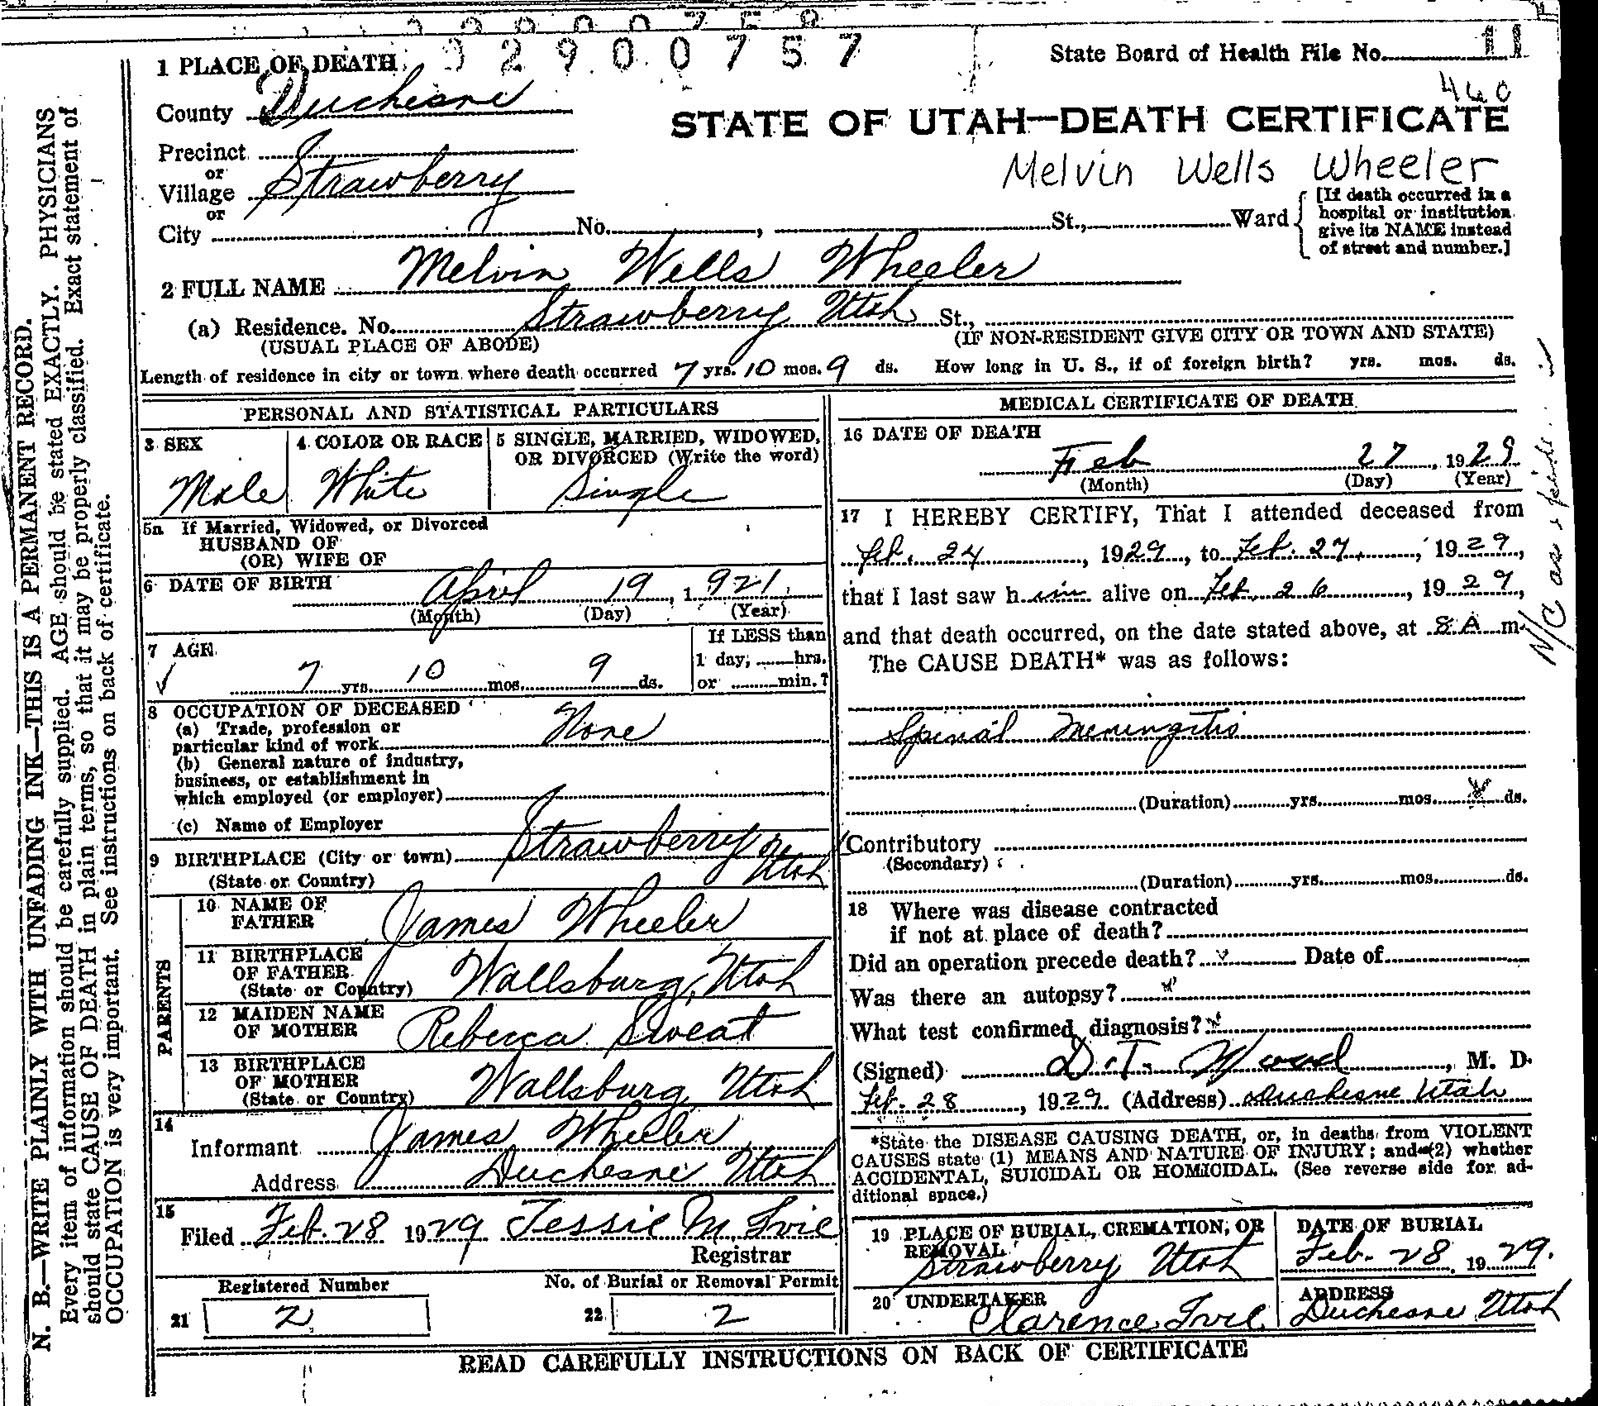 2900757
State Board of Health File No. 11
460
1 PLACE OF DEATH
County Duchesne
STATE OF UTAH—DEATH CERTIFICATE
Melvin Wells Wheeler
Precinct
or
Village Strawberry
or
City No. , St., Ward
[If death occurred in a
hospital or institution
give its NAME instead
of street and number.]
2 FULL NAME Melvin Wells Wheeler
(a) Residence. No. Strawberry Utah St.,
(USUAL PLACE OF ABODE) (IF NON-RESIDENT GIVE CITY OR TOWN AND STATE)
Length of residence in city or town where death occurred 7 yrs. 10 mos. 9 ds. How long in U. S., if of foreign birth? yrs. mos. ds.
PERSONAL AND STATISTICAL PARTICULARS
3 SEX
Male
4 COLOR OR RACE
White
5 SINGLE, MARRIED, WIDOWED,
OR DIVORCED (Write the word)
Single
5a If Married, Widowed, or Divorced
HUSBAND OF
(OR) WIFE OF
6 DATE OF BIRTH April 19, 1921
(Month) (Day) (Year)
7 AGE
7 yrs. 10 mos. 9 ds.
If LESS than
1 day, hrs.
or min.?
8 OCCUPATION OF DECEASED
(a) Trade, profession or
particular kind of work None
(b) General nature of industry,
business, or establishment in
which employed (or employer)
(c) Name of Employer
9 BIRTHPLACE (City or town) Strawberry
(State or Country) Utah
PARENTS
10 NAME OF
FATHER James Wheeler
11 BIRTHPLACE
OF FATHER
(State or Country) Wallsburg, Utah
12 MAIDEN NAME
OF MOTHER Rebecca Sweat
13 BIRTHPLACE
OF MOTHER
(State or Country) Wallsburg Utah
14
Informant James Wheeler
Address Duchesne Utah
15
Filed Feb. 28 1929 Jessie M Ivie
Registrar
Registered Number
21 2
No. of Burial or Removal Permit
22 2
MEDICAL CERTIFICATE OF DEATH
16 DATE OF DEATH
Feb 27, 1929
(Month) (Day) (Year)
17 I HEREBY CERTIFY, That I attended deceased from
Feb. 24, 1929, to Feb. 27, 1929,
that I last saw him alive on Feb. 26, 1929,
and that death occurred, on the date stated above, at 8 A m.
The CAUSE DEATH* was as follows:
Spinal Meningitis
(Duration) yrs. mos. ds.
Contributory
(Secondary)
(Duration) yrs. mos. ds.
18 Where was disease contracted
if not at place of death?
Did an operation precede death? Date of
Was there an autopsy?
What test confirmed diagnosis?
(Signed) D. T. Wood, M. D.
Feb. 28, 1929 (Address) Duchesne Utah
*State the DISEASE CAUSING DEATH, or, in deaths from VIOLENT
CAUSES state (1) MEANS AND NATURE OF INJURY; and (2) whether
ACCIDENTAL, SUICIDAL OR HOMICIDAL. (See reverse side for ad-
ditional space.)
19 PLACE OF BURIAL, CREMATION, OR
REMOVAL
Strawberry Utah
DATE OF BURIAL
Feb. 28, 1929.
20 UNDERTAKER
Clarence Ivie
ADDRESS
Duchesne Utah
READ CAREFULLY INSTRUCTIONS ON BACK OF CERTIFICATE
N. B.—WRITE PLAINLY WITH UNFADING INK—THIS IS A PERMANENT RECORD.
Every item of information should be carefully supplied. AGE should be stated EXACTLY. PHYSICIANS
should state CAUSE OF DEATH in plain terms, so that it may be properly classified. Exact statement of
OCCUPATION is very important. See instructions on back of certificate.